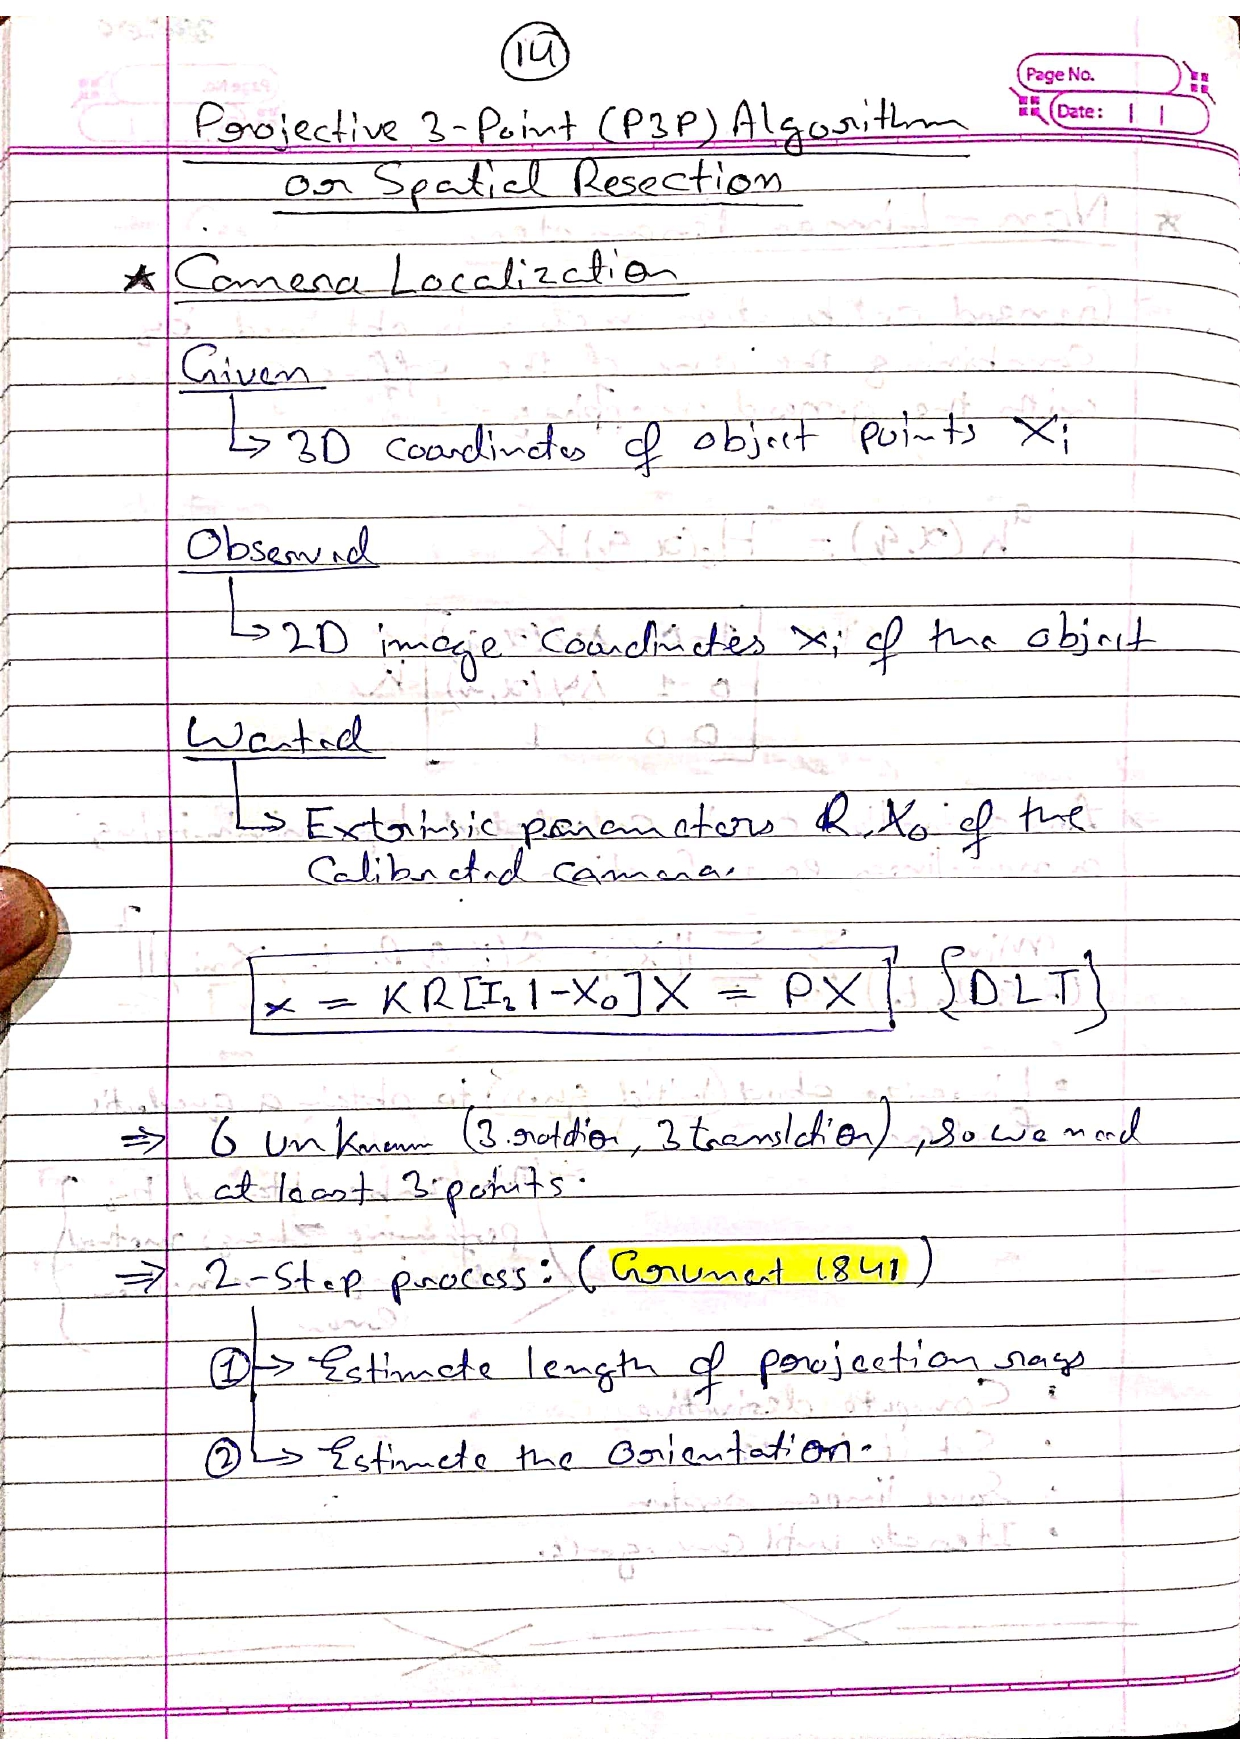 14
Page No.
Date:
Projective 3-Point (P3P) Algorithm
or Spatial Resection
★ Camera Localization
Given
↳ 3D coordinates of object points Xi
Observed
↳ 2D image coordinates xi of the object
Wanted
↳ Extrinsic parameters R, X₀ of the
Calibrated camera.
x = KR[I₂|-X₀]X = PX {DLT}
⇒ 6 unknown (3 rotation, 3 translation), so we need
at least 3 points.
⇒ 2-Step process: (Grunert 1841)
① → Estimate length of projection rays
② ↳ Estimate the orientation.